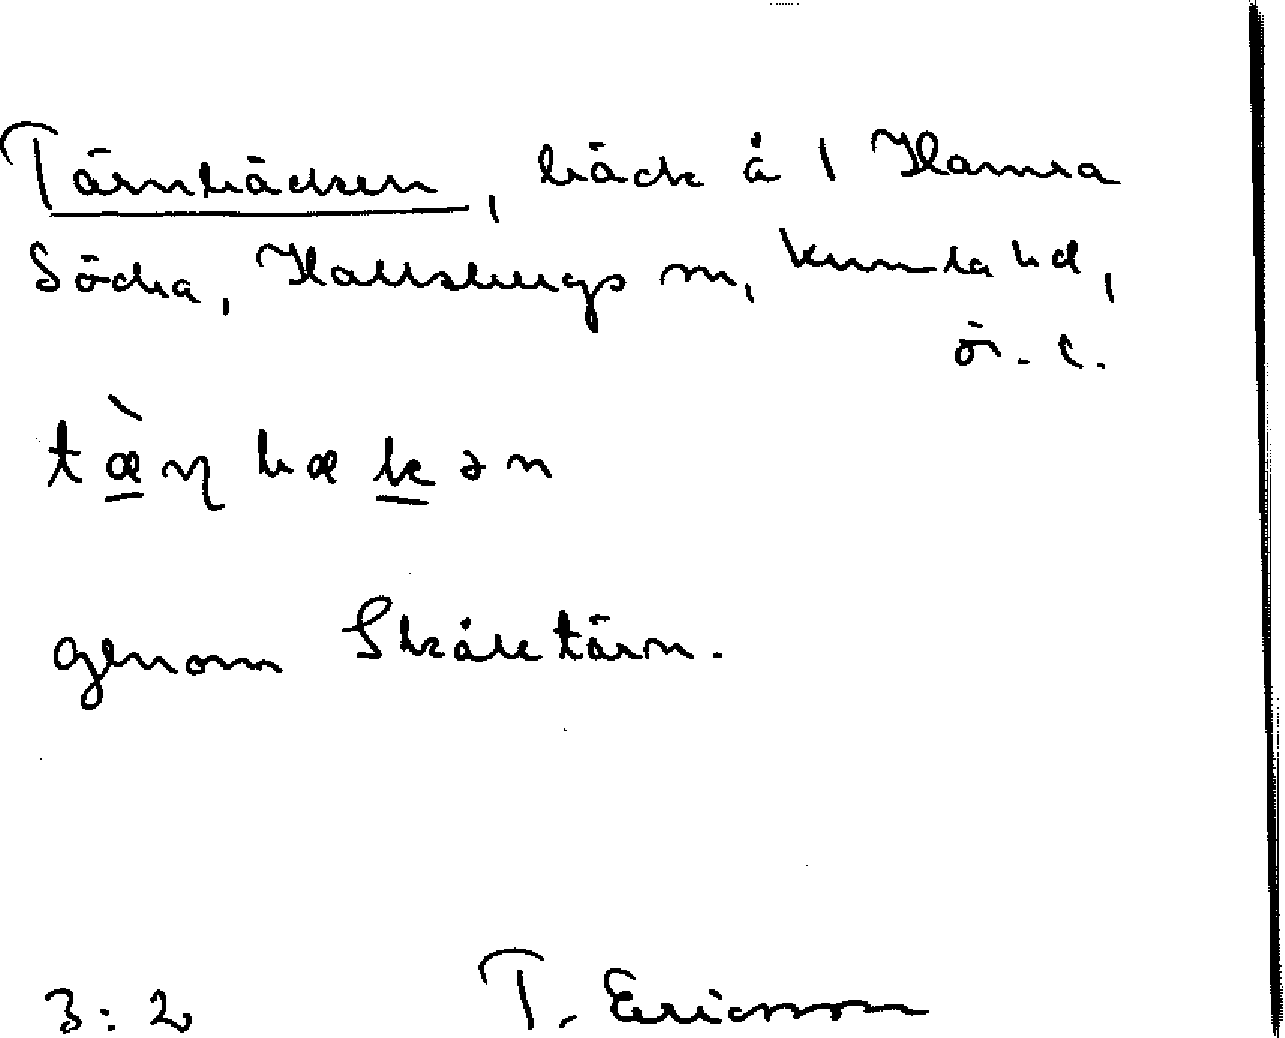 Tärnbäcken, bäck å 1 Hamra
Södra, Hallsbergs sn, Kumla hd,
ör. l.
tæ̀ɳbækən
genom Skåletärn.
3:2 T. Ericsson